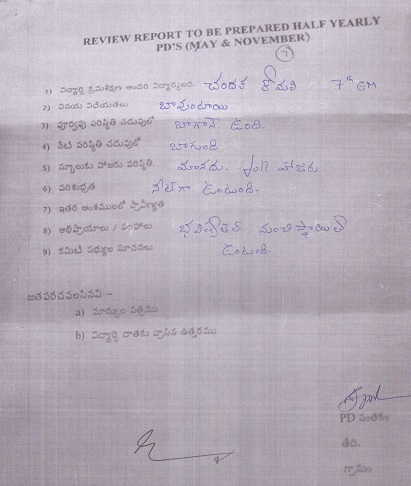 REVIEW REPORT TO BE PREPARED HALF YEARLY
PD'S (MAY & NOVEMBER)
7
1) విద్యార్థి క్రమశిక్షణ అందరి విద్యార్థులది. చందక కోమలి 7th EM
2) వినయ విధేయతలు బావుంటాయి
3) పూర్వపు పరిస్థితి చదువులో బాగానే ఉంది.
4) నేటి పరిస్థితి చదువులో బాగుంది
5) స్కూలుకు హాజరు పరిస్థితి. మానదు. full హాజరు
6) పరిశుభ్రత నీట్‌గా ఉంటుంది.
7) ఇతర అంశములలో ప్రావీణ్యత
8) అభిప్రాయాలు / సలహాలు భవిష్యత్‌లో మంచి స్థాయిలో
9) కమిటీ సభ్యుల సూచనలు ఉంటుంది.
జతపరచవలసినవి :-
a) మార్కుల పత్రము
b) విద్యార్థి దాతకు వ్రాసిన ఉత్తరము
PD సంతకం
తేది.
గ్రామం